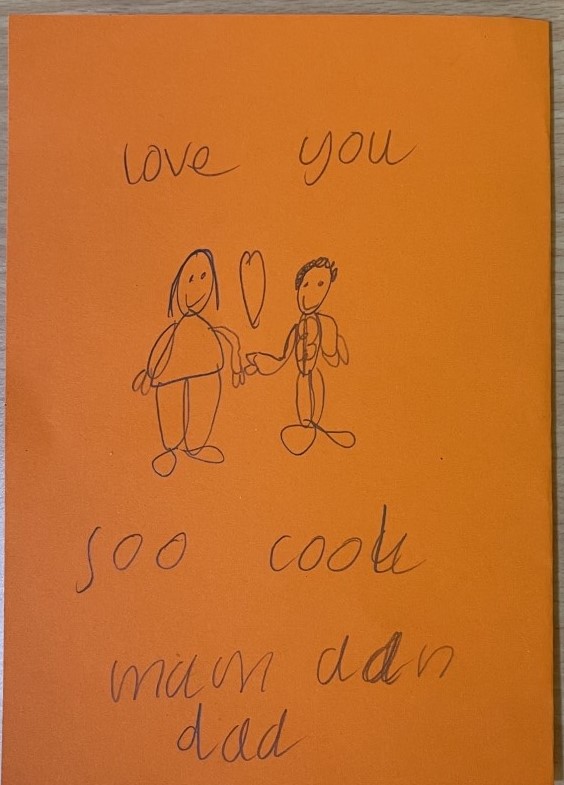 love you
soo
mam dan
dad